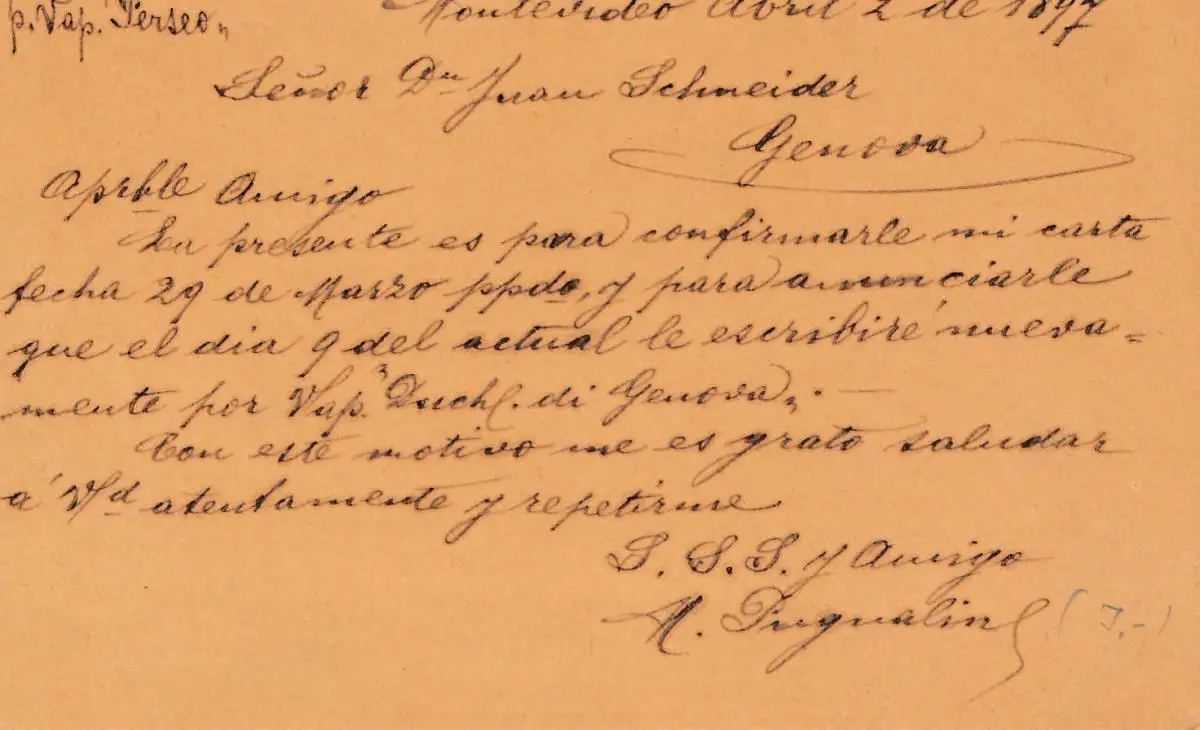 p. Vap. "Perseo" Montevideo Abril 2 de 1897
Señor Dn Juan Schneider
Genova
Aprble Amigo
La presente es para confirmarle mi carta
fecha 29 de Marzo ppdo, y para anunciarle
que el dia 9 del actual le escribiré nueva=
mente por Vap. "Duch. di Genova". —
Con este motivo me es grato saludar
á Vd atentamente y repetirme
S. S. S. y Amigo
M.